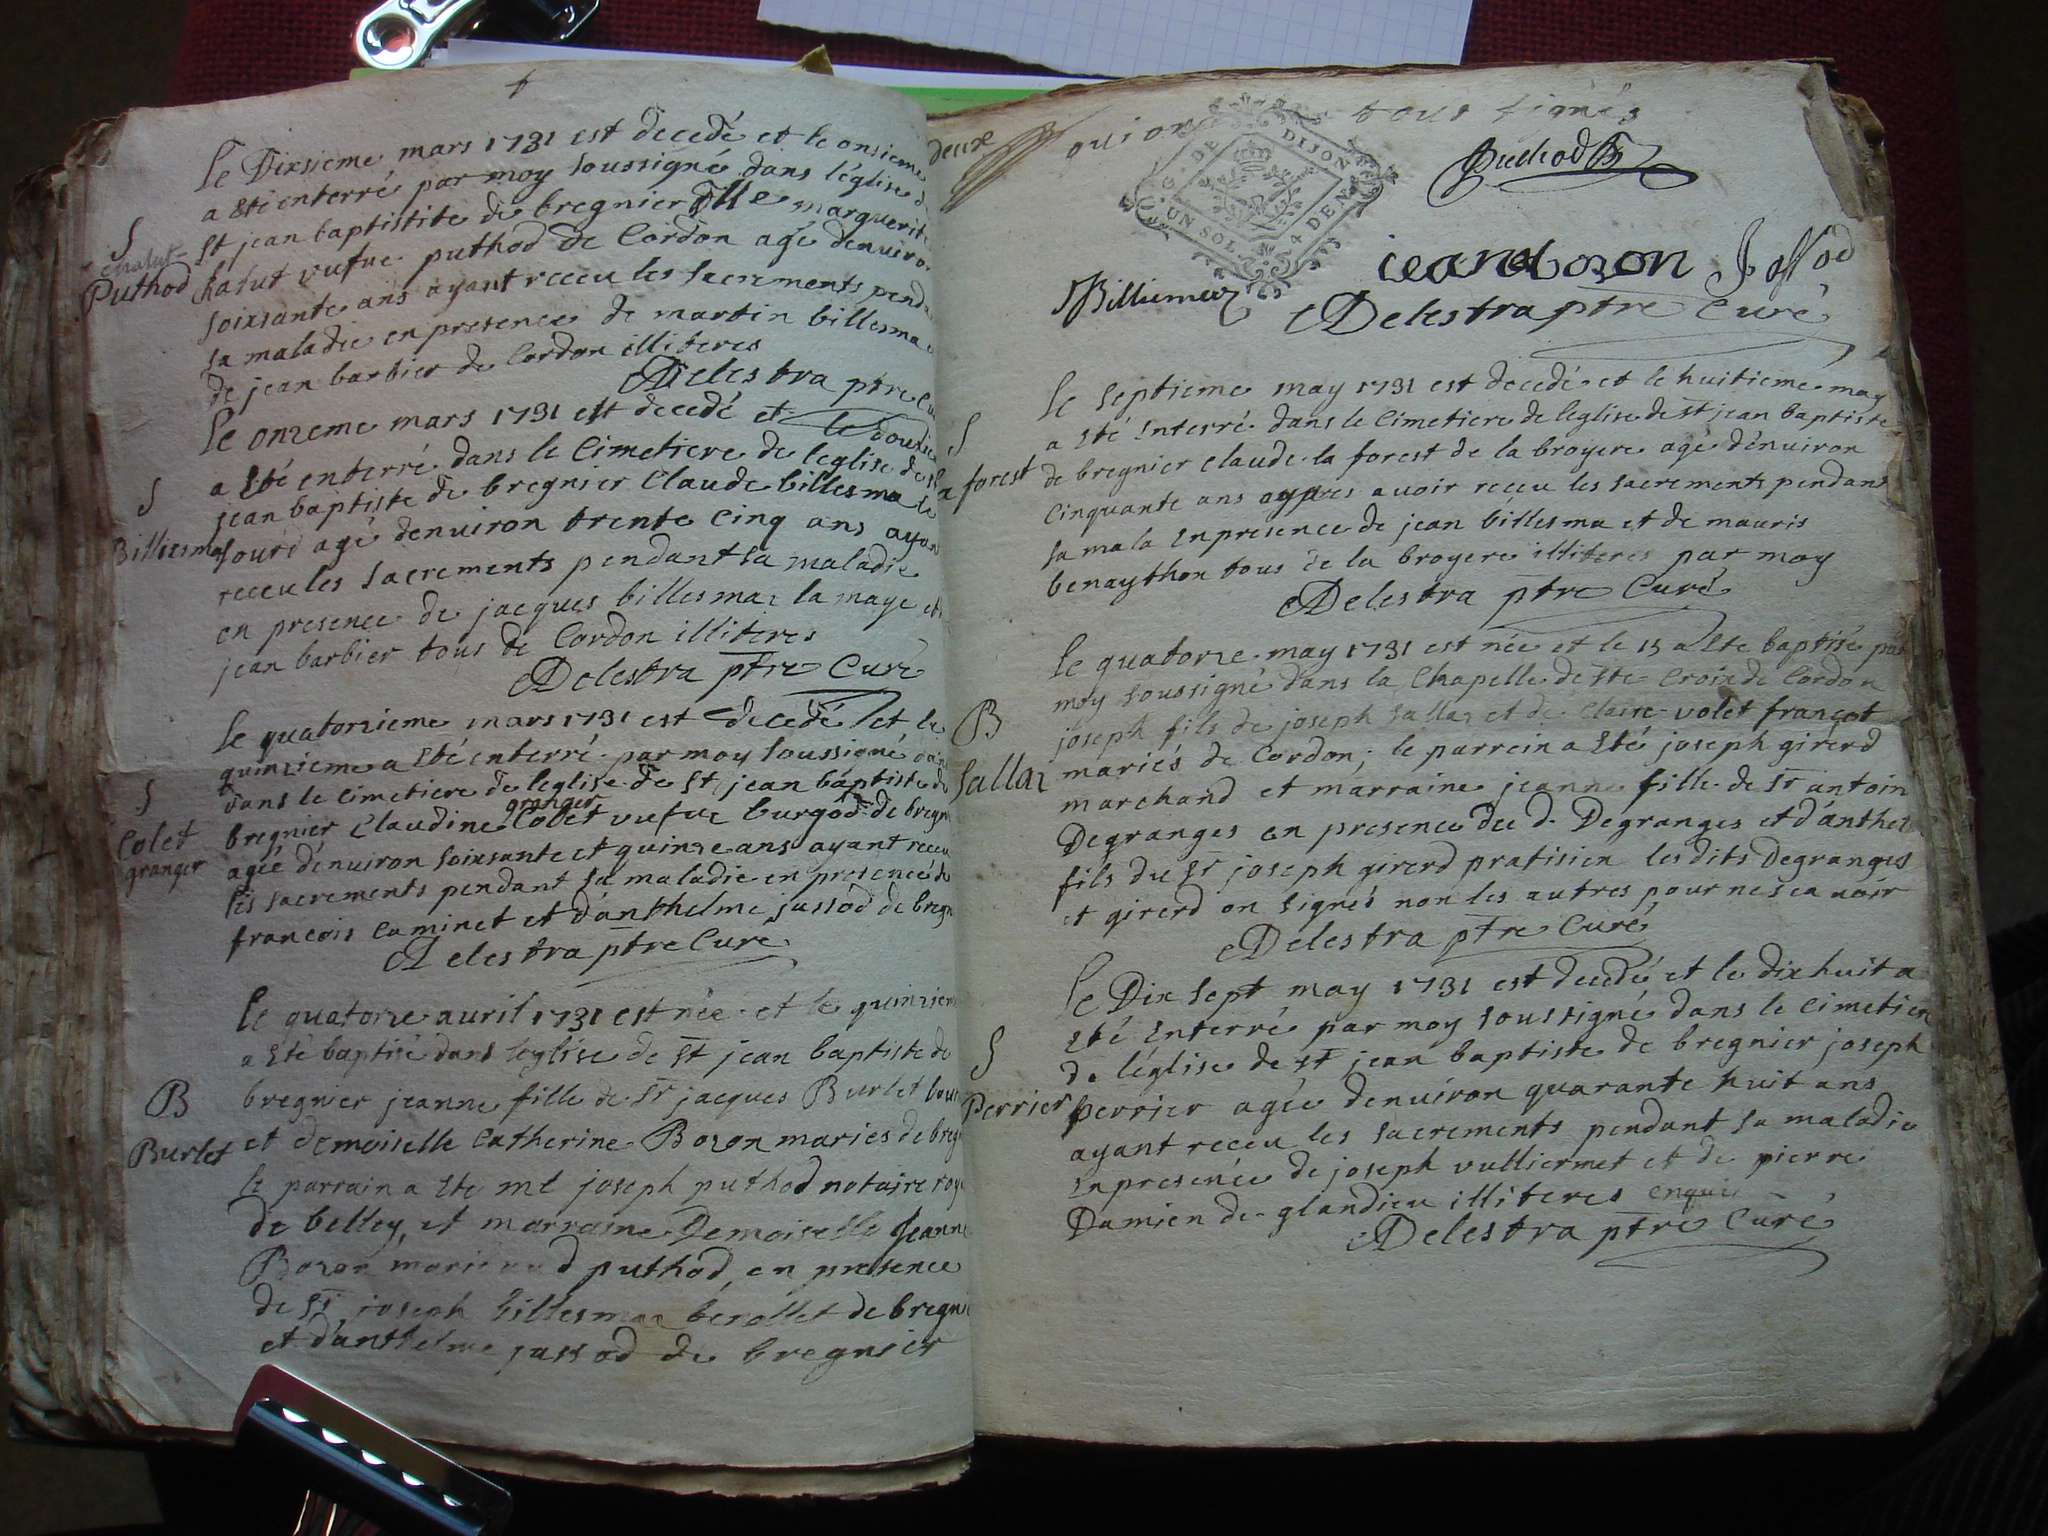 Le Dixsieme mars 1731 est decedé et le onsieme
a Eté enterré par moy soussigné dans léglise
St jean baptistite de bregnier marguerite
chatut
Puthod
S
hatut vufue puthod de Cordon agé denuiron
soixsante ans ayant receu les sacrements pend
sa maladie en presence de martin billesma
de jean barbier de Cordon illiteres
Delestra ptre Cu
Le onzeme mars 1731 est decedé et le douzie
a Eté enterré dans le Cimetiere de leglise de St
S
Billiesma
jean baptiste de bregnier Claude billesma
agé denuiron trente Cinq ans ayan
receu les sacrements pendant sa maladie
en presence de jacques billesmaz la maye et
jean barbier tous de Cordon illiteres
Delestra ptre Curé
Le quatorzieme mars 1731 est decedé et le
quinzieme a Eté enterré par moy soussigné dan
S
Colet
granger
dans le Cimetiere de leglise de St jean baptiste de
granger
bregnier Claudine Colet vufue burgod de bregni
agée dénuiron soixsante et quinze ans ayant receu
les sacrements pendant sa maladie en presence de
francois Caminet et d'anthelme jussod de bregn
Delestra ptre Curé
Le quatorze auril 1731 est née et le quinziem
a Eté baptisé dans leglise de St jean baptiste de
B
Burlet
bregnier jeanne fille de Sr jacques Burlet bour
et demoiselle Catherine Bozon mariés de bregn
le parrain a Ete me joseph puthod notaire roya
de belley, et marraine Demoiselle Jeanne
Bozon puthod, en presence
de Sr joseph billesmaz berollet de bregni
et d'anthelme jussod de bregnier
deux qui on tous signés
G. DE DIJON
UN SOL 4 DEN
Puthod
jean bozon Jossod
Billiemaz
Delestra ptre Curé
S
la forest
Le septieme may 1731 est decedé et le huitieme may
a Eté Enterré dans le Cimetiere de leglise de St jean baptiste
de bregnier Claude la forest de la broyere agé dénuiron
Cinquante ans appres auoir receu les sacrements pendant
sa mala En presence de jean billesma et de mauris
benaython tous de la broyere illiteres par moy
Delestra ptre Curé
B
Sallaz
Le quatorze may 1731 est née et le 15 a Ete baptisé par
moy soussigné dans la Chapelle de Ste Croix de Cordon
joseph fils de joseph Sallaz et de Claire volet françot
mariés de Cordon; le parrein a Eté joseph girerd
marchand et marraine jeanne fille de Sr antoin
Degranges en presence du d. Degranges et d'anthel
fils du Sr joseph gererd pratisien les dits Degranges
et girerd on signés non les autres pour ne sca uoir
Delestra ptre Curé
S
Perrier
Le Dix sept may 1731 est decedé et le dix huit a
Eté Enterré par moy soussigné dans le Cimetier
de léglise de St jean baptiste de bregnier joseph
perrier agée denuiron quarante huit ans
ayant receu les sacrements pendant sa maladie
En presence de joseph vulliermet et de pierre
Damien de glandieu illiteres
Delestra ptre Curé